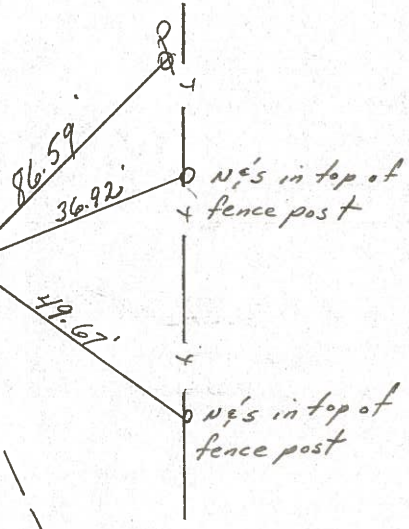 86.59'
36.92'
N&S in top of
fence post
49.67'
N&S in top of
fence post